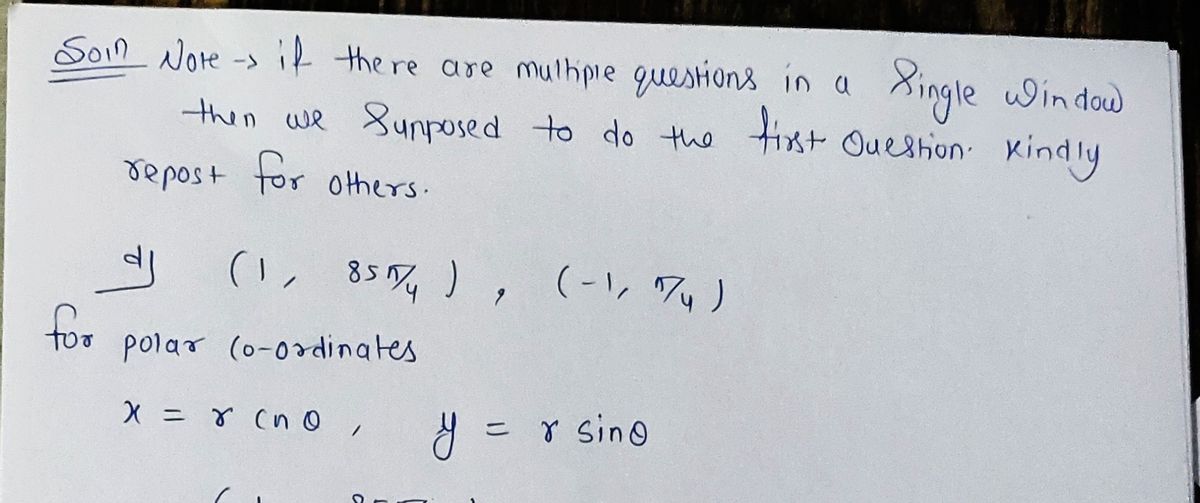 Soln Note -> if there are multiple questions in a Single Window
then we Sunposed to do the first Question. Kindly
repost for others.
d) (1, 85π/4), (-1, π/4)
for polar co-ordinates
x = r cn θ, y = r sinθ